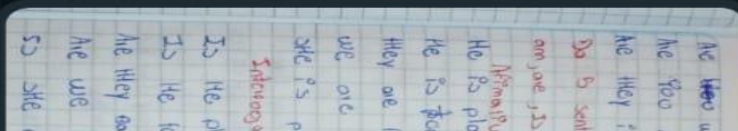 Are
Are You
Are they
Do 5 sent
am, are, Is
Afirmativ
He is pla
He is
they are
We are
She is p
Interroga
Is He pl
Is He
Are they ea
Are we
Is She